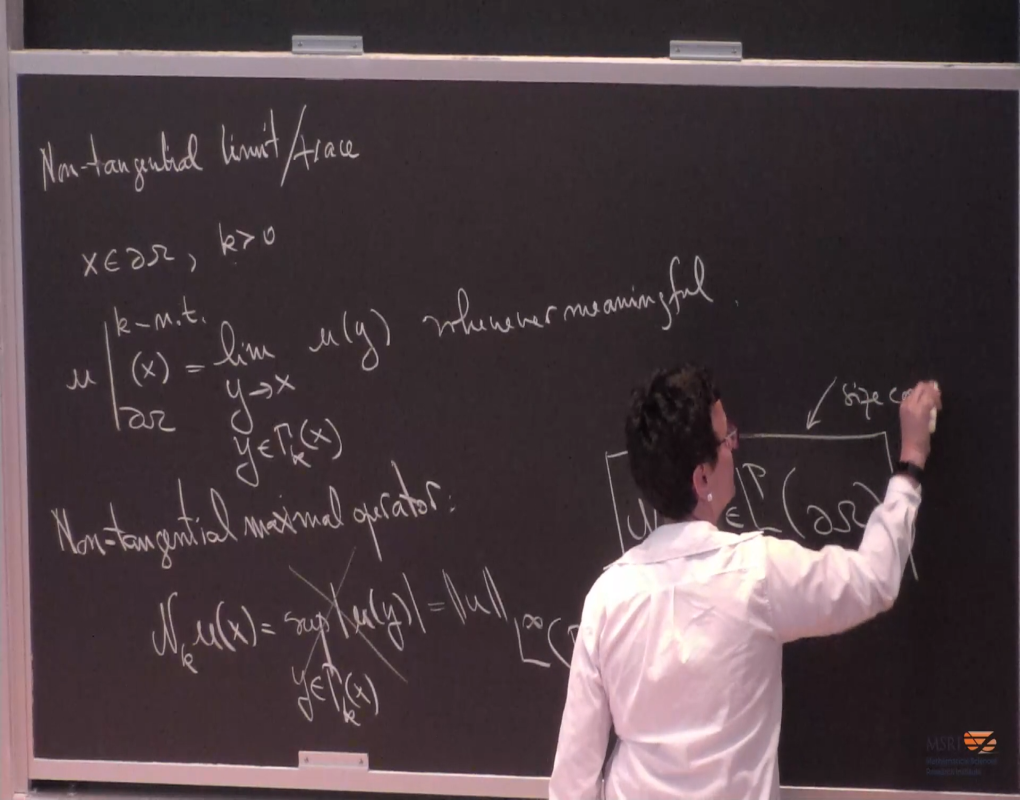 Non-tangential limit/trace
x∈∂Ω, k>0
u|^{k-n.t.}_{∂Ω} (x) = lim_{y→x, y∈Γ_k(x)} u(y) whenever meaningful.
size
∈ L^p(∂Ω)
Non-tangential maximal operator:
N_k u(x) = sup_{y∈Γ_k(x)} |u(y)| = ||u||_{L^∞(
MSRI